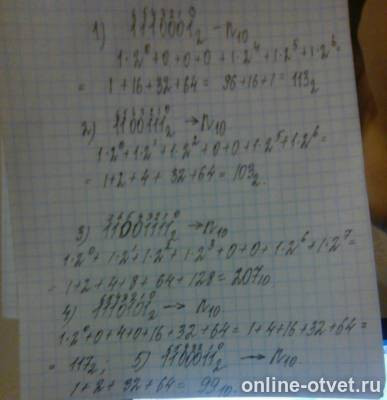 1) 1110001₂ - N₁₀
1·2⁰+0+0+0+1·2⁴+1·2⁵+1·2⁶=
= 1+16+32+64= 96+16+1= 113₂
2) 1100111₂ → N₁₀
1·2⁰+1·2¹+1·2²+0+0+1·2⁵+1·2⁶=
= 1+2+4+32+64= 103₂.
3) 11001111₂ → N₁₀
1·2⁰+1·2¹+1·2²+1·2³+0+0+1·2⁶+1·2⁷=
= 1+2+4+8+64+128= 207₁₀.
4) 1110101₂ → N₁₀.
1·2⁰+0+4+0+16+32+64= 1+4+16+32+64=
= 117₂; 5) 1100011₂ → N₁₀.
1+2+32+64= 99₁₀.
online-otvet.ru